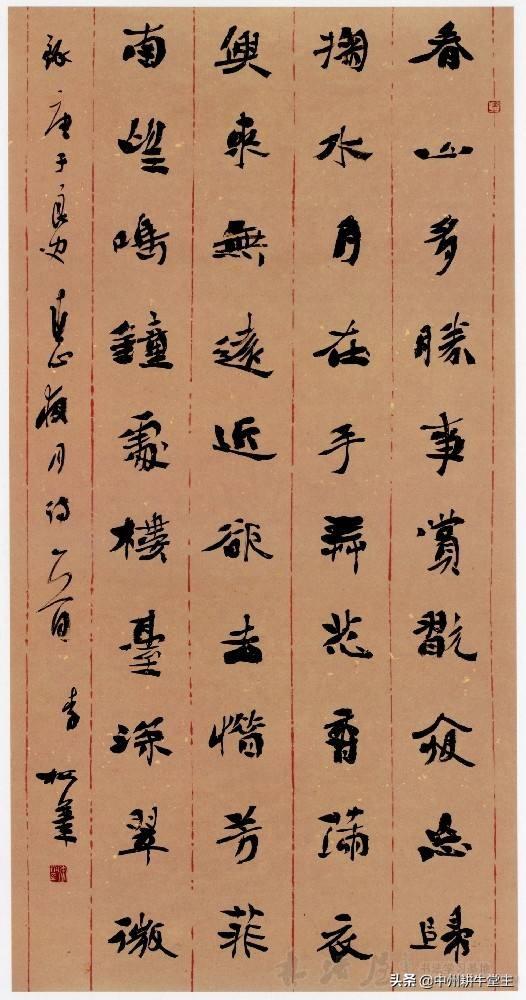 春山多勝事賞翫夜忘歸
掬水月在手弄花香滿衣
興來無遠近欲去惜芳菲
南望鳴鐘處樓臺深翠微
錄唐于良史春山夜月詩一首
李松
头条 @中州耕牛堂主